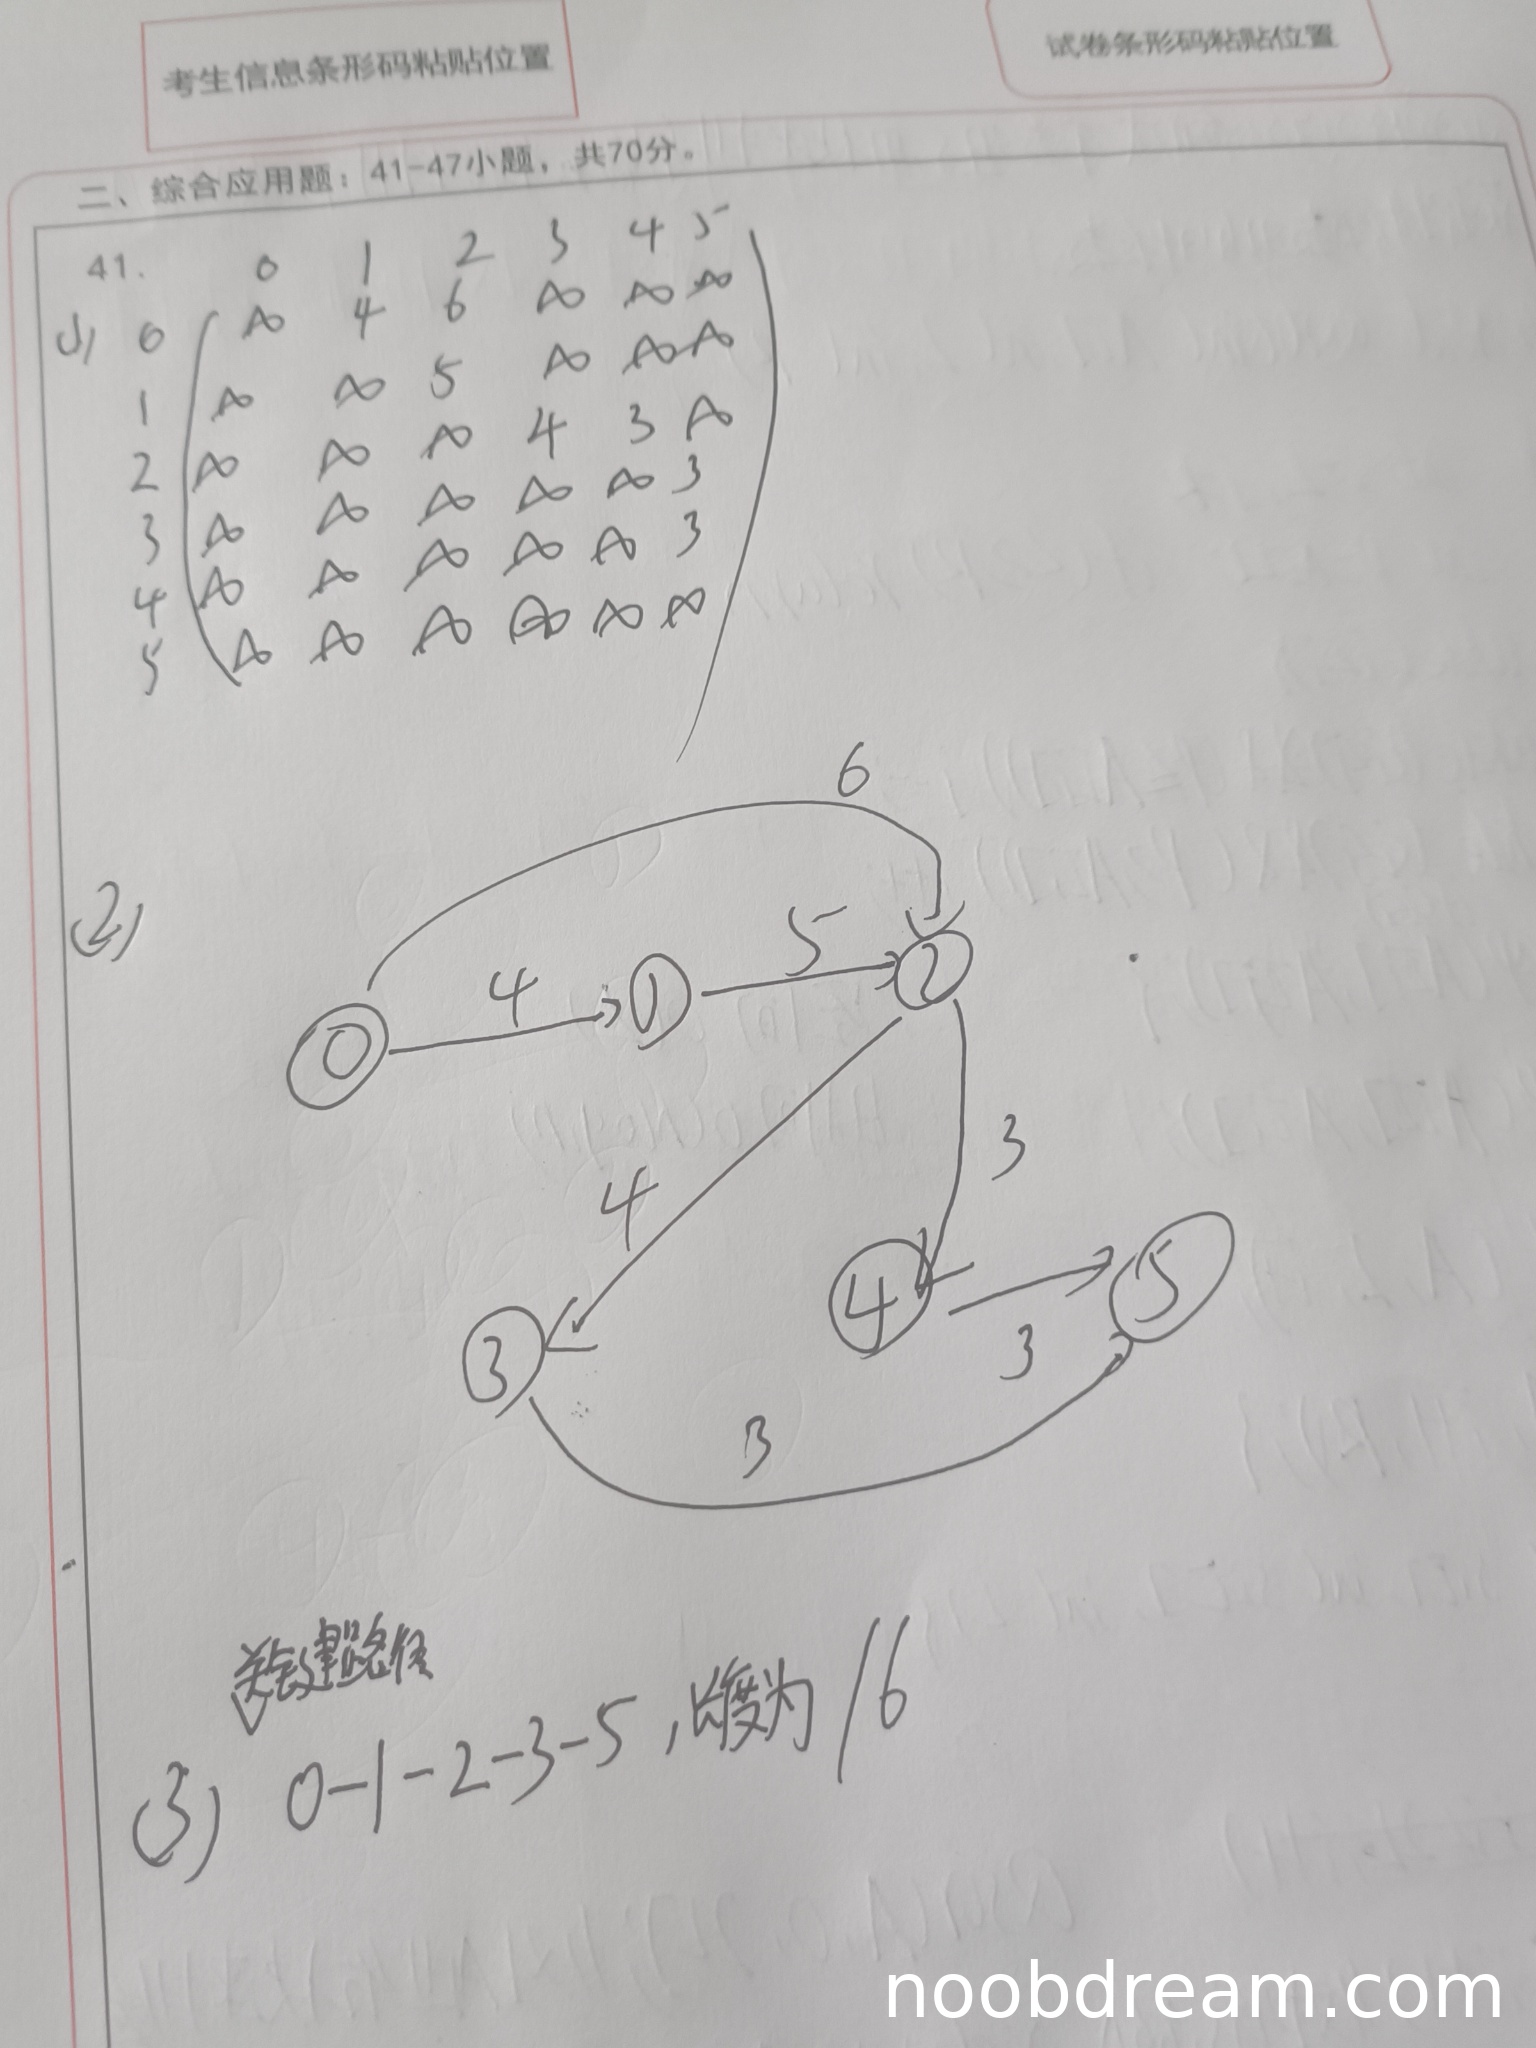 考生信息条形码粘贴位置
试卷条形码粘贴位置
二、综合应用题：41-47小题，共70分。
41.
0 1 2 3 4 5
(1) 0 ∞ 4 6 ∞ ∞ ∞
1 ∞ ∞ 5 ∞ ∞ ∞
2 ∞ ∞ ∞ 4 3 ∞
3 ∞ ∞ ∞ ∞ ∞ 3
4 ∞ ∞ ∞ ∞ ∞ 3
5 ∞ ∞ ∞ ∞ ∞ ∞
6
(2)
0 4 1 5 2
4 3
3 4 3 5
3
关键路径
(3) 0-1-2-3-5，长度为16
noobdream.com